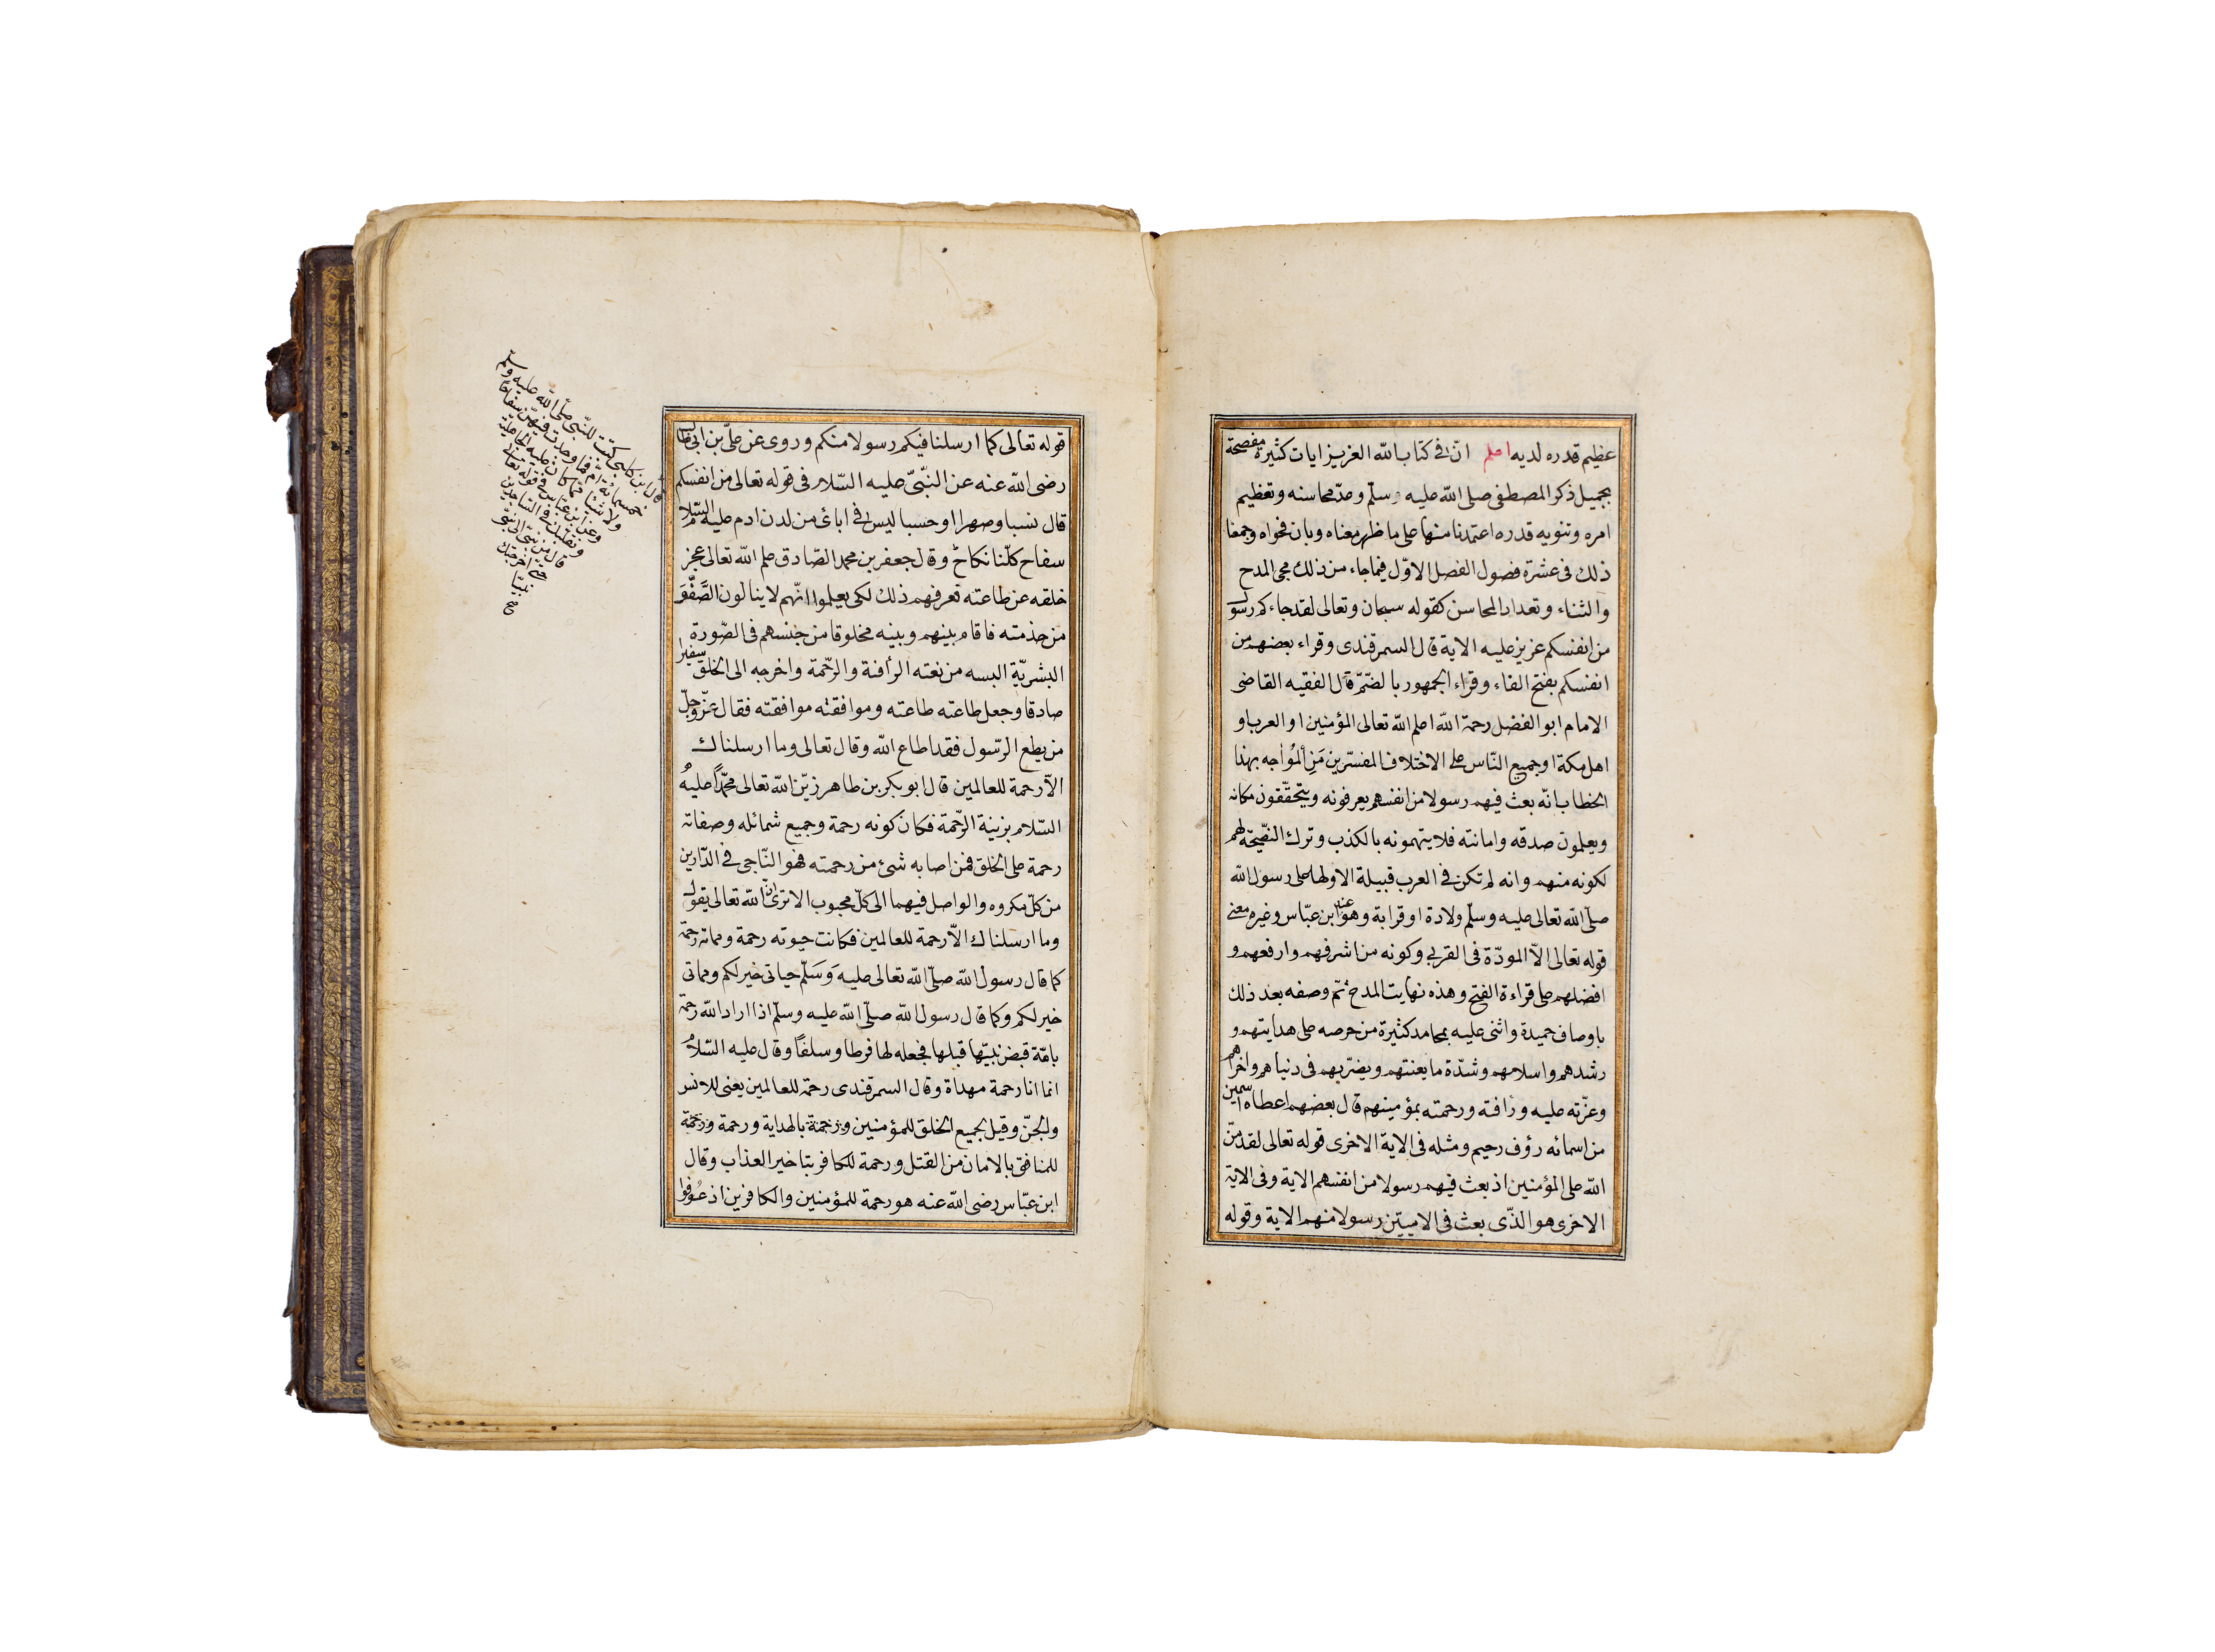 عظيم قدره لديه اعلم انّ في كتاب الله العزيز ايات كثيرة مفصحة
بجميل ذكر المصطفى صلى الله عليه وسلّم وعدّ محاسنه وتعظيم
امره وتنويه قدره اعتمدنا منها على ما ظهر معناه وبان فحواه وجمعنا
ذلك فى عشرة فصول الفصل الاوّل فيما جاء من ذلك مجى المدح
والثناء وتعداد المحاسن كقوله سبحان وتعالى لقد جاءكم رسول
من انفسكم عزيز عليه الاية قال السمرقندى وقراء بعضهم من
انفسكم بفتح الفاء وقراء الجمهور بالضّمّ قال الفقيه القاضى
الامام ابو الفضل رحمة الله اعلم الله تعالى المؤمنين او العرب او
اهل مكة او جميع النّاس على الاختلاف المفسّرين مَنِ المُواجه بهذا
الخطاب انّه بعث فيهم رسولا من انفسهم يعرفونه ويتحقّقون مكانه
ويعلمون صدقه وامانته فلا يتهمونه بالكذب وترك النصّيحة لهم
لكونه منهم وانه لم تكن في العرب قبيلة الا ولها على رسول الله
صلّى الله تعالى عليه وسلّم ولادة او قرابة وهو عند ابن عبّاس وغيره معنى
قوله تعالى الاّ المودّة فى القربى وكونه من اشرفهم وارفعهم و
افضلهم على قراءة الفتح وهذه نهايت المدح ثمّ وصفه بعد ذلك
باوصاف حميدة واثنى عليه بمحامد كثيرة من حرصه على هدايتهم و
رشدهم واسلامهم وشدّة ما يعنتهم ويضرّبهم فى دنياهم واخراهم
وعزّته عليه ورافته ورحمته بمؤمنينهم قال بعضهم اعطاه اسمين
من اسمائه رؤف رحيم ومثله فى الاية الاخرى قوله تعالى لقد منّ
الله على المؤمنين اذ بعث فيهم رسولا من انفسهم الاية وفى الاية
الاخرى هو الذّى بعث فى الاميين رسولا منهم الاية وقوله
قوله تعالى كما ارسلنا فيكم رسولا منكم وروى عن علىّ بن ابى طالب
رضى الله عنه عن النّبّى عليه السّلام فى قوله تعالى من انفسكم
قال نسبا وصهرا او حسبا ليس في ابائى من لدن ادم عليه السّلام
سفاح كلّنا نكاح وقال جعفر بن محمد الصّادق علم الله تعالى عجز
خلقه عن طاعته تعرفهم ذلك لكى يعلموا انّهم لا ينالون الصَّفْوَ
من خدمته فاقام بينهم وبينه مخلوقا من جنسهم فى الصّورة
البشريّة البسه من نعته الرأفة والرّحمة واخرجه الى الخلق سفيرا
صادقا وجعل طاعته طاعته وموافقته موافقته فقال عزّ وجلّ
من يطع الرّسول فقد اطاع الله وقال تعالى وما ارسلناك
الاّ رحمة للعالمين قال ابو بكر بن طاهر زيّن الله تعالى محمّداً عليهُ
السّلام بزينة الرّحمة فكان كونه رحمة وجميع شمائله وصفاته
رحمة على الخلق فمن اصابه شئ من رحمته فهو النّاجى فى الدّارين
من كلّ مكروه والواصل فيهما الى كلّ محبوب الا ترى انّ الله تعالى يقول
وما ارسلناك الاّ رحمة للعالمين فكانت حيوته رحمة ومماته رحمة
كما قال رسول الله صلّى الله تعالى عليه وَسَلّم حياتى خير لكم ومماتى
خير لكم وكما قال رسول الله صلّى الله عليه وسلّم اذا اراد الله رحمة
بامّة قبض نبيّها قبلها فجعله لها فرطا وسلفاً وقال عليه السّلامُ
انما انا رحمة مهداة وقال السمرقندى رحمة للعالمين يعنى للانس
والجنّ وقيل لجميع الخلق للمؤمنين ورحمة بالهداية ورحمة ورحمة
للمنافق بالامان من القتل ورحمة للكافر بتاخير العذاب وقال
ابن عبّاس رضى الله عنه هو رحمة للمؤمنين والكافرين اذ عُوفوا
قال ابن كلبى كتبت للنّبى صلّى الله عليه وسلّم
خمسمائة امّ فما وجدت فيهنّ سفاحا
ولا شيئا ممّا كان عليه الجاهليّة
وعن ابن عبّاس فى قوله تعالى
وتقلّبك فى السّاجدين
قال من نبىّ الى نبىّ
حتى اخرجتك
نبيّا
صح